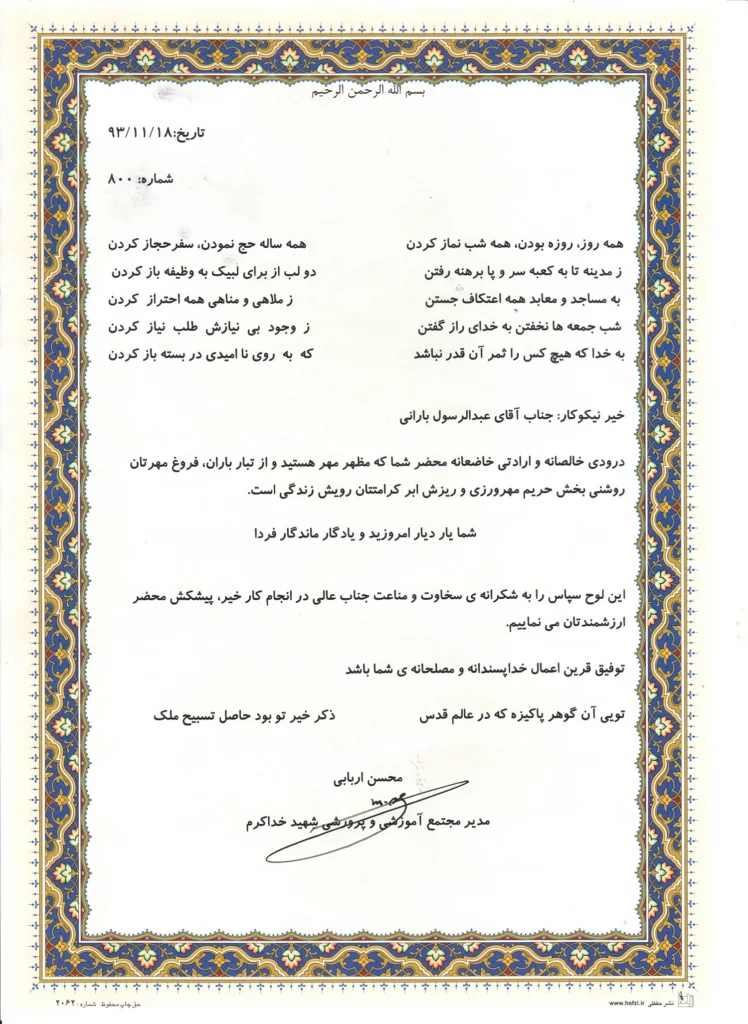 بسم الله الرحمن الرحیم
تاریخ:۹۳/۱۱/۱۸
شماره: ۸۰۰
همه روز، روزه بودن، همه شب نماز کردن همه ساله حج نمودن، سفرحجاز کردن
ز مدینه تا به کعبه سر و پا برهنه رفتن دو لب از برای لبیک به وظیفه باز کردن
به مساجد و معابد همه اعتکاف جستن ز ملاهی و مناهی همه احتراز کردن
شب جمعه ها نخفتن به خدای راز گفتن ز وجود بی نیازش طلب نیاز کردن
به خدا که هیچ کس را ثمر آن قدر نباشد که به روی نا امیدی در بسته باز کردن
خیر نیکوکار: جناب آقای عبدالرسول بارانی
درودی خالصانه و ارادتی خاضعانه محضر شما که مظهر مهر هستید و از تبار باران، فروغ مهرتان
روشنی بخش حریم مهرورزی و ریزش ابر کرامتتان رویش زندگی است.
شما یار دیار امروزید و یادگار ماندگار فردا
این لوح سپاس را به شکرانه ی سخاوت و مناعت جناب عالی در انجام کار خیر، پیشکش محضر
ارزشمندتان می نماییم.
توفیق قرین اعمال خداپسندانه و مصلحانه ی شما باشد
تویی آن گوهر پاکیزه که در عالم قدس ذکر خیر تو بود حاصل تسبیح ملک
محسن اربابی
مدیر مجتمع آموزشی و پرورشی شهید خداکرم
نشر حفظی www.hefzi.ir
حق چاپ محفوظ. شماره: ۲۰۶۲